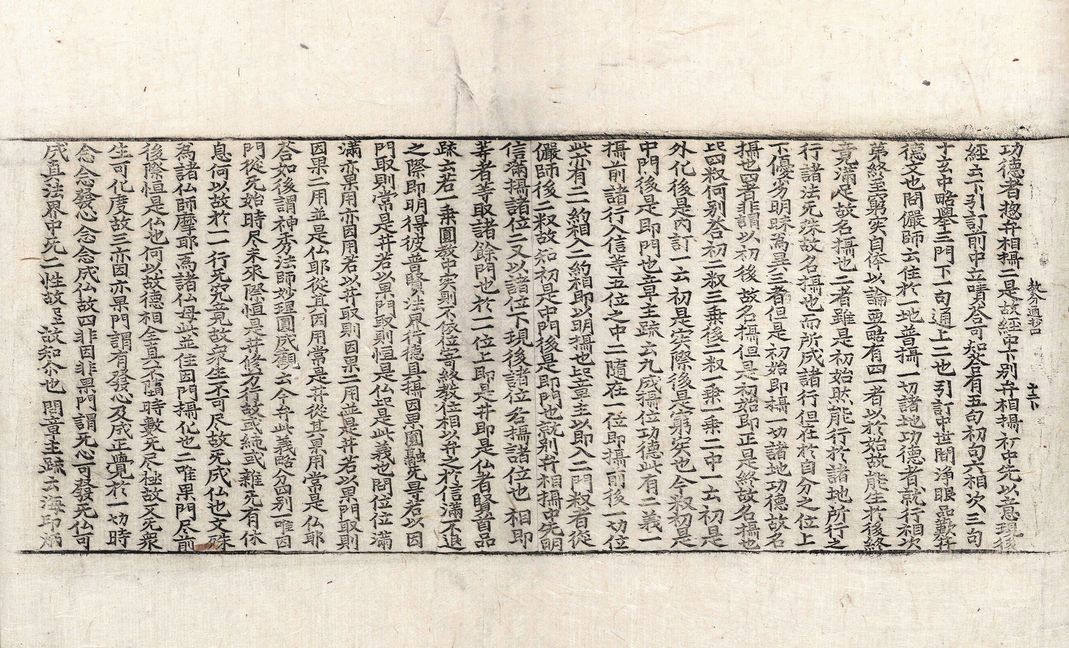 功德者惣弁相攝二是故經中下別弁相攝初中先以意現後
教分通抄四 十五下
經云下引訂前中立嘖答可知答有五句初句六相次三句
十玄中略舉三門下一句通上二也引訂中世間淨眼品歎井
德文也問儼師云住於一地普攝一切諸地功德者就行相次
第終至窮实自体以論亟酷有四者以於始故能生井後終
竟滿足故名攝也二者雖是初始然能行於諸地所行之
行諸法旡殊故名攝也而所成諸行但在於自分之位上
下優劣明昧為異三者但是初始即攝一切諸地功德故名
攝也四者非謂以初後故名攝但是初始即正是終故名攝也
此四叔何別答初二叔三乘後二叔一乘二中一云初是
外化後是內訂一云初是实際後是窮实也今叔初是
中門後是即門也章主䟽云九成攝位功德此有二義一
攝前諸行入信等五位之中二隨在一位即攝前後一切位
此亦有二一約相入二約相即以明攝也此章主以即入二門叔者從
儼師後二叔故知初是中門後是即門也就別弁相攝中先明
信滿攝諸位二又以諸位下現後諸位各攝諸位也相即
等者等取諸餘門也於一位上即是井即是仏者賢首品
䟽云若一乘圓教中实則不依位寄終教位相以弁之於信滿不退
之際即明得彼普賢法界行德且攝因果圓融旡㝵若以因
門取則常是井若以果門取則恒是仏起是此義也問位位滿
滿亦果用亦因用若以井取則因果二用並是井若以果門取則
因果二用並是仏耶從其因用常是井從其果用常是仏耶
答如後謂神秀法師妙理圓成觀云今弁此義略分四別一唯因
門從旡始時尽未來際恒是井修万行故或純或雜旡有休
息何以故於一行旡究竟故衆生不可尽故旡成仏也文殊
為諸仏師摩耶為諸仏母並住因門攝化也二唯果門尽前
後際恒是仏也何以故德相全具不臨時數旡尽極故又旡衆
生可化度故三亦因亦果門謂有發心及成正覺於一切時
念念發心念念成仏故四非因非果門謂旡心可發旡仏可
成直法界中旡二性故是故知尒也問章主䟽云海印炳